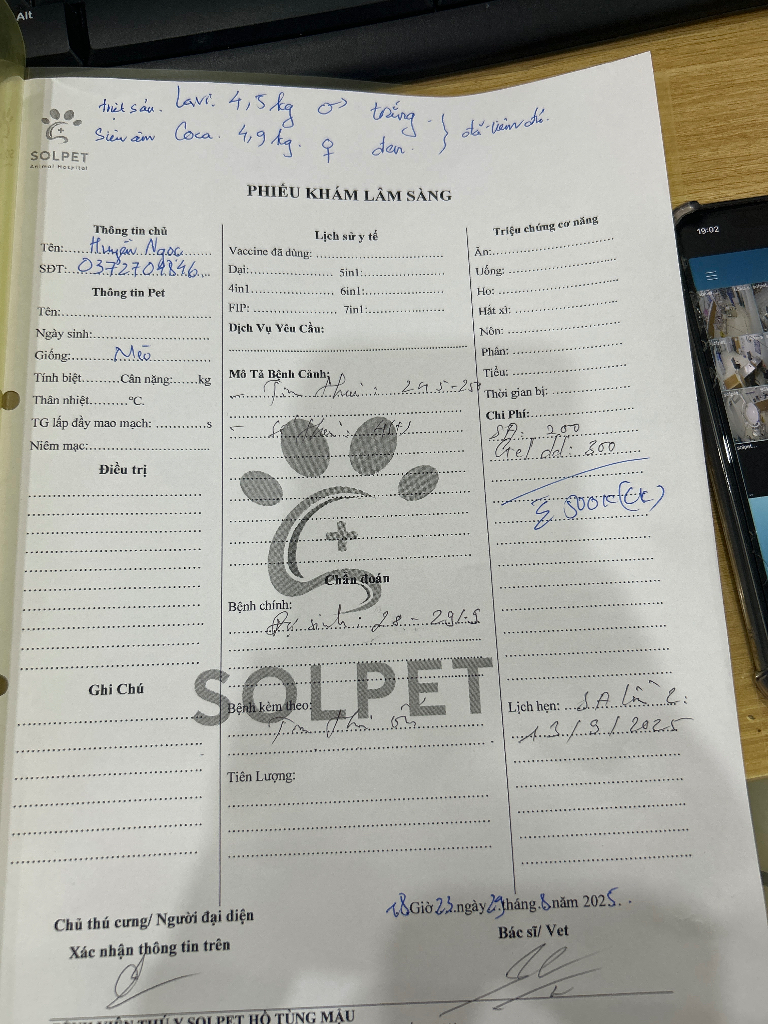 Alt
triệt sản. Lavi. 4,5kg ♂ trắng
Siêu âm Coca. 4,9kg. ♀ đen. } đã tiêm đủ.
SOLPET
Animal Hospital
PHIẾU KHÁM LÂM SÀNG
Thông tin chủ
Tên: Huyền Ngọc
SĐT: 0372709846
Thông tin Pet
Tên:
Ngày sinh:
Giống: Mèo
Tính biệt.........Cân nặng:......kg
Thân nhiệt..........°C.
TG lấp đầy mao mạch: ............s
Niêm mạc:
Điều trị
Ghi Chú
Lịch sử y tế
Vaccine đã dùng:
Dại: 5in1:
4in1 6in1:
FIP: 7in1:
Dịch Vụ Yêu Cầu:
Mô Tả Bệnh Cảnh:
- Tim thai: 245-250
- Số thai:
Chẩn đoán
Bệnh chính:
Dự sinh: 28-29/9
SOLPET
Bệnh kèm theo:
Tim thai ổn
Tiên Lượng:
Triệu chứng cơ năng
Ăn:
Uống:
Ho:
Hắt xì:
Nôn:
Phân:
Tiểu:
Thời gian bị:
Chi Phí:
SA: 200
Gel dd: 300
Σ 500k (CK)
Lịch hẹn: SA lần 2:
13/9/2025
18 Giờ 23 ngày 29 tháng 8 năm 2025.
Chủ thú cưng/ Người đại diện
Xác nhận thông tin trên
Bác sĩ/ Vet
BỆNH VIỆN THÚ Y SOLPET HỒ TÙNG MẬU
19:02